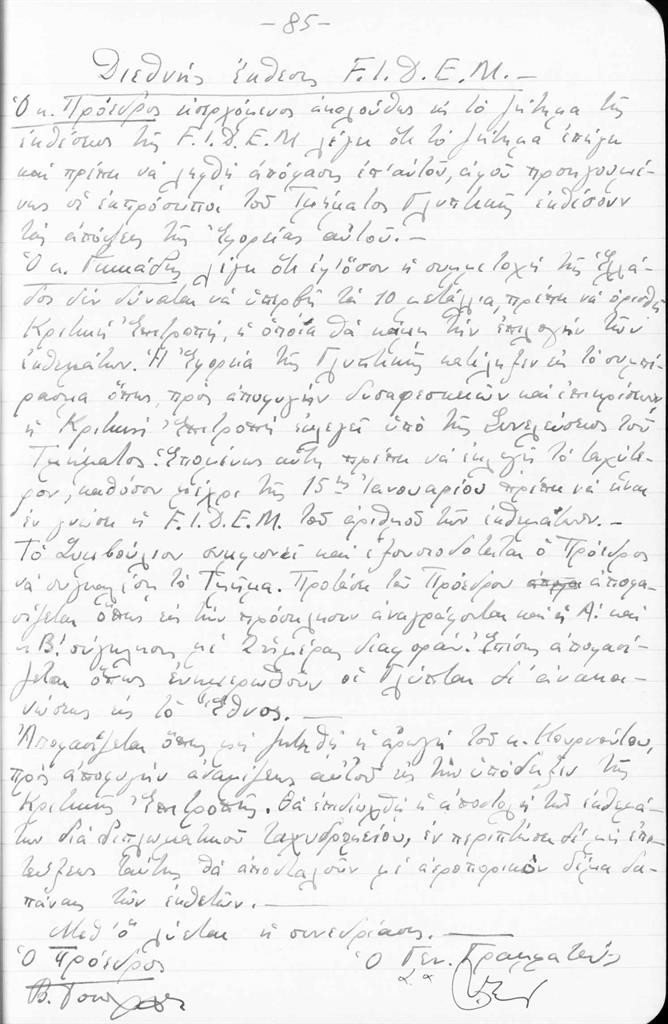 -85-
Διεθνής ἔκθεσις F.I.D.E.M.-
Ὁ κ. Πρόεδρος εἰσερχόμενος ἀκολούθως εἰς τὸ ζήτημα τῆς
ἐκθέσεως τῆς F.I.D.E.M λέγει ὅτι τὸ ζήτημα ἐπείγει
καὶ πρέπει νὰ ληφθῇ ἀπόφασις ἐπ' αὐτοῦ, ἀφοῦ προηγουμέ-
νως οἱ ἐκπρόσωποι τοῦ Τμήματος Γλυπτικῆς ἐκθέσουν
τὰς ἀπόψεις τῆς Ἐφορείας αὐτοῦ.-
Ὁ κ. λέγει ὅτι ἐφ' ὅσον ἡ συμμετοχὴ τῆς Ἑλλά-
δος δὲν δύναται νὰ ὑπερβῇ τὰ 10 μετάλλια, πρέπει νὰ ὁρισθῇ
Κριτικὴ Ἐπιτροπή, ἡ ὁποία θὰ κάμῃ τὴν ἐπιλογὴν τῶν
ἐκθεμάτων. Ἡ Ἐφορεία τῆς Γλυπτικῆς κατέληξεν εἰς τὸ συμπέ-
ρασμα ὅπως, πρὸς ἀποφυγὴν δυσαρεσκειῶν καὶ ἐπικρίσεων
ἡ Κριτικὴ Ἐπιτροπὴ ἐκλεγῇ ὑπὸ τῆς Συνελεύσεως τοῦ
Τμήματος. Ἑπομένως αὕτη πρέπει νὰ ἐκλεγῇ τὸ ταχύτε-
ρον, καθόσον μέχρι τῆς 15ης Ἰανουαρίου πρέπει νὰ εἶναι
ἐν γνώσει ἡ F.I.D.E.M. τοῦ ἀριθμοῦ τῶν ἐκθεμάτων.-
Τὸ Συμβούλιον συμφωνεῖ καὶ ἐξουσιοδοτεῖται ὁ Πρόεδρος
νὰ συγκαλέσῃ τὸ Τμῆμα. Προτάσει τοῦ Προέδρου ἀποφα-
σίζεται ὅπως εἰς τὴν πρόσκλησιν ἀναγράφονται καὶ ἡ Α΄. καὶ
ἡ Β΄. σύγκλησις μὲ διαφοράν. Ἐπίσης ἀποφασί-
ζεται ὅπως ἐνημερωθοῦν οἱ Γλύπται δι' ἀνακοι-
νώσεως εἰς τὸ Ἔθνος.-
Ἀποφασίζεται ὅπως μὴ ζητηθῇ ἡ ἀρωγὴ τοῦ κ. Κουρνούτου,
πρὸς ἀποφυγὴν ἀναμίξεως αὐτοῦ εἰς τὴν ὑπόδειξιν τῆς
Κριτικῆς Ἐπιτροπῆς. Θὰ ἐπιδιωχθῇ ἡ ἀποστολὴ τῶν ἐκθεμά-
των διὰ διπλωματικοῦ ταχυδρομείου, ἐν περιπτώσει δὲ μὴ ἐπι-
τεύξεως ταύτης θὰ ἀποσταλοῦν μὲ ἀεροπορικὸν δέμα δα-
πάναις τῶν ἐκθετῶν.-
Μεθ' ὃ λύεται ἡ συνεδρίασις.-
Ὁ Πρόεδρος Ὁ Γεν. Γραμματεύς